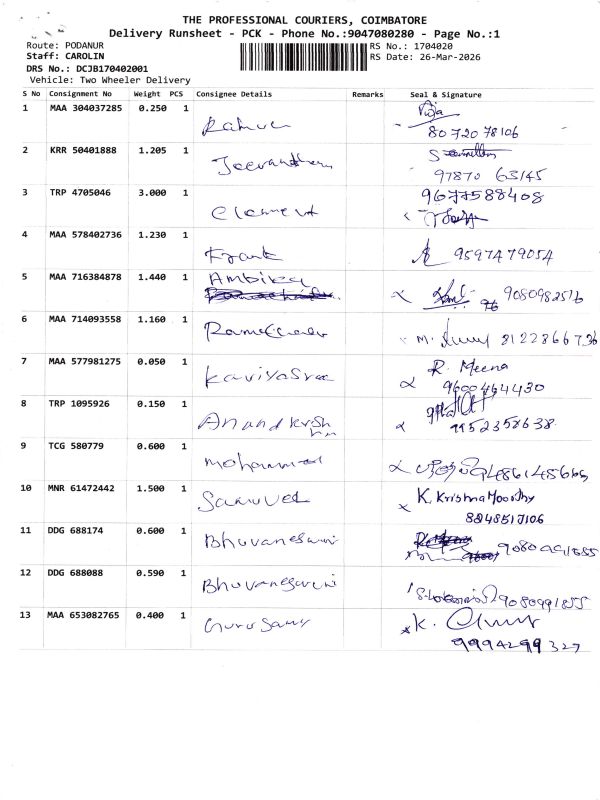 THE PROFESSIONAL COURIERS, COIMBATORE
Delivery Runsheet - PCK - Phone No.:9047080280 - Page No.:1
Route: PODANUR
RS No.: 1704020
Staff: CAROLIN
RS Date: 26-Mar-2026
DRS No.: DCJB170402001
Vehicle: Two Wheeler Delivery
S No Consignment No Weight PCS Consignee Details Remarks Seal & Signature
1 MAA 304037285 0.250 1
80720 78106
2 KRR 50401888 1.205 1
97870 63145
3 TRP 4705046 3.000 1 Clement 9677588408
4 MAA 578402736 1.230 1 Frank 9597479054
5 MAA 716384878 1.440 1 Ambika 9080982516
6 MAA 714093558 1.160 1 8122866736
7 MAA 577981275 0.050 1 Kaviyasree R. Meena
9600464430
8 TRP 1095926 0.150 1 Anandkrsh
9952358638
9 TCG 580779 0.600 1 Mohammed
10 MNR 61472442 1.500 1 Samuvel K. Krishna Moorthy
8848517106
11 DDG 688174 0.600 1 Bhuvaneswari
12 DDG 688088 0.590 1 Bhuvaneswari 9080991855
13 MAA 653082765 0.400 1 Gurusamy K.
9994299327